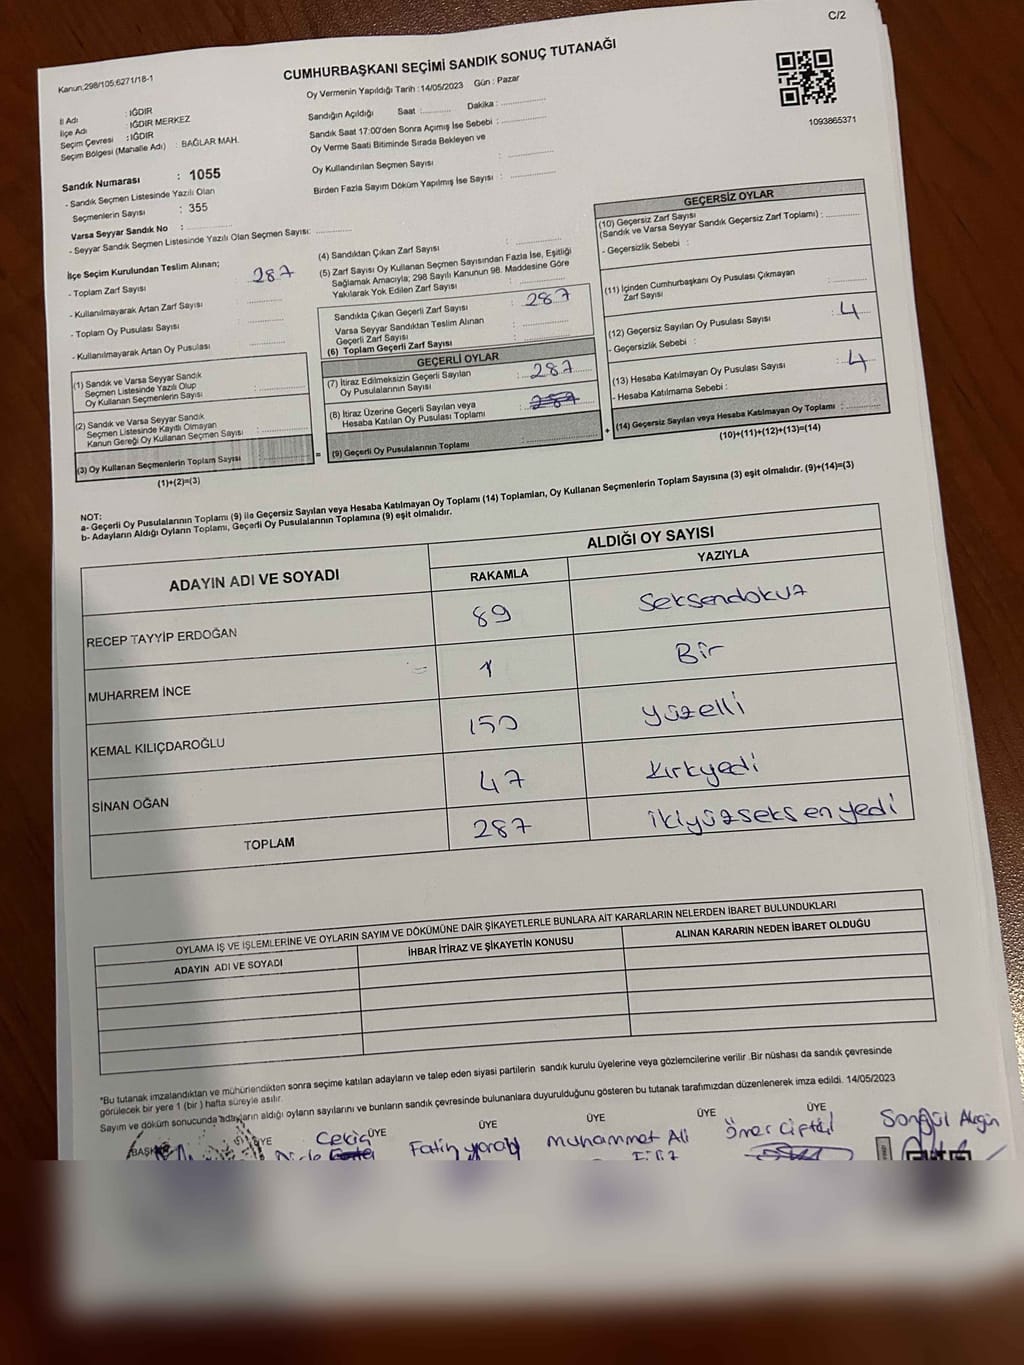 C/2
Kanun,298/105;6271/18-1
CUMHURBAŞKANI SEÇİMİ SANDIK SONUÇ TUTANAĞI
Oy Vermenin Yapıldığı Tarih :14/05/2023 Gün : Pazar
1093865371
İl Adı : IĞDIR
İlçe Adı : IĞDIR MERKEZ
Seçim Çevresi : IĞDIR
Seçim Bölgesi (Mahalle Adı) : BAĞLAR MAH.
Sandığın Açıldığı Saat :........... Dakika : ................
Sandık Saat 17:00'den Sonra Açımış İse Sebebi : ................
Oy Verme Saati Bitiminde Sırada Bekleyen ve
Oy Kullandırılan Seçmen Sayısı : ................
Birden Fazla Sayım Döküm Yapılmış İse Sayısı : ................
Sandık Numarası : 1055
- Sandık Seçmen Listesinde Yazılı Olan
Seçmenlerin Sayısı : 355
Varsa Seyyar Sandık No : ................
- Seyyar Sandık Seçmen Listesinde Yazılı Olan Seçmen Sayısı: ................
İlçe Seçim Kurulundan Teslim Alınan;
- Toplam Zarf Sayısı : 287
- Kullanılmayarak Artan Zarf Sayısı : ................
- Toplam Oy Pusulası Sayısı : ................
- Kullanılmayarak Artan Oy Pusulası : ................
(1) Sandık ve Varsa Seyyar Sandık
Seçmen Listesinde Yazılı Olup
Oy Kullanan Seçmenlerin Sayısı : ................
(2) Sandık ve Varsa Seyyar Sandık
Seçmen Listesinde Kayıtlı Olmayan
Kanun Gereği Oy Kullanan Seçmen Sayısı : ................
(3) Oy Kullanan Seçmenlerin Toplam Sayısı : ................
(1)+(2)=(3)
(4) Sandıktan Çıkan Zarf Sayısı : ................
(5) Zarf Sayısı Oy Kullanan Seçmen Sayısından Fazla İse, Eşitliği
Sağlamak Amacıyla; 298 Sayılı Kanunun 98. Maddesine Göre
Yakılarak Yok Edilen Zarf Sayısı : ................
Sandıkta Çıkan Geçerli Zarf Sayısı : 287
Varsa Seyyar Sandıktan Teslim Alınan
Geçerli Zarf Sayısı : ................
(6) Toplam Geçerli Zarf Sayısı : ................
GEÇERLİ OYLAR
(7) İtiraz Edilmeksizin Geçerli Sayılan
Oy Pusulalarının Sayısı : 287
(8) İtiraz Üzerine Geçerli Sayılan veya
Hesaba Katılan Oy Pusulası Toplamı : 287
(9) Geçerli Oy Pusulalarının Toplamı : ................
=
+
GEÇERSİZ OYLAR
(10) Geçersiz Zarf Sayısı
(Sandık ve Varsa Seyyar Sandık Geçersiz Zarf Toplamı) : ................
- Geçersizlik Sebebi :
(11) İçinden Cumhurbaşkanı Oy Pusulası Çıkmayan
Zarf Sayısı : ................
(12) Geçersiz Sayılan Oy Pusulası Sayısı : 4
- Geçersizlik Sebebi :
(13) Hesaba Katılmayan Oy Pusulası Sayısı : 4
- Hesaba Katılmama Sebebi :
(14) Geçersiz Sayılan veya Hesaba Katılmayan Oy Toplamı : ................
(10)+(11)+(12)+(13)=(14)
NOT:
a- Geçerli Oy Pusulalarının Toplamı (9) ile Geçersiz Sayılan veya Hesaba Katılmayan Oy Toplamı (14) Toplamları, Oy Kullanan Seçmenlerin Toplam Sayısına (3) eşit olmalıdır. (9)+(14)=(3)
b- Adayların Aldığı Oyların Toplamı, Geçerli Oy Pusulalarının Toplamına (9) eşit olmalıdır.
ADAYIN ADI VE SOYADI
ALDIĞI OY SAYISI
RAKAMLA YAZIYLA
RECEP TAYYİP ERDOĞAN 89 Seksendokuz
MUHARREM İNCE 1 Bir
KEMAL KILIÇDAROĞLU 150 yüzelli
SİNAN OĞAN 47 kırkyedi
TOPLAM 287 ikiyüzseksenyedi
OYLAMA İŞ VE İŞLEMLERİNE VE OYLARIN SAYIM VE DÖKÜMÜNE DAİR ŞİKAYETLERLE BUNLARA AİT KARARLARIN NELERDEN İBARET BULUNDUKLARI
ADAYIN ADI VE SOYADI İHBAR İTİRAZ VE ŞİKAYETİN KONUSU ALINAN KARARIN NEDEN İBARET OLDUĞU
*Bu tutanak imzalandıktan ve mühürlendikten sonra seçime katılan adayların ve talep eden siyasi partilerin sandık kurulu üyelerine veya gözlemcilerine verilir .Bir nüshası da sandık çevresinde
görülecek bir yere 1 (bir ) hafta süreyle asılır.
Sayım ve döküm sonucunda adayların aldığı oyların sayılarını ve bunların sandık çevresinde bulunanlara duyurulduğunu gösteren bu tutanak tarafımızdan düzenlenerek imza edildi. 14/05/2023
ÜYE ÜYE ÜYE ÜYE ÜYE
Muhammet Ali
Songül Akgün